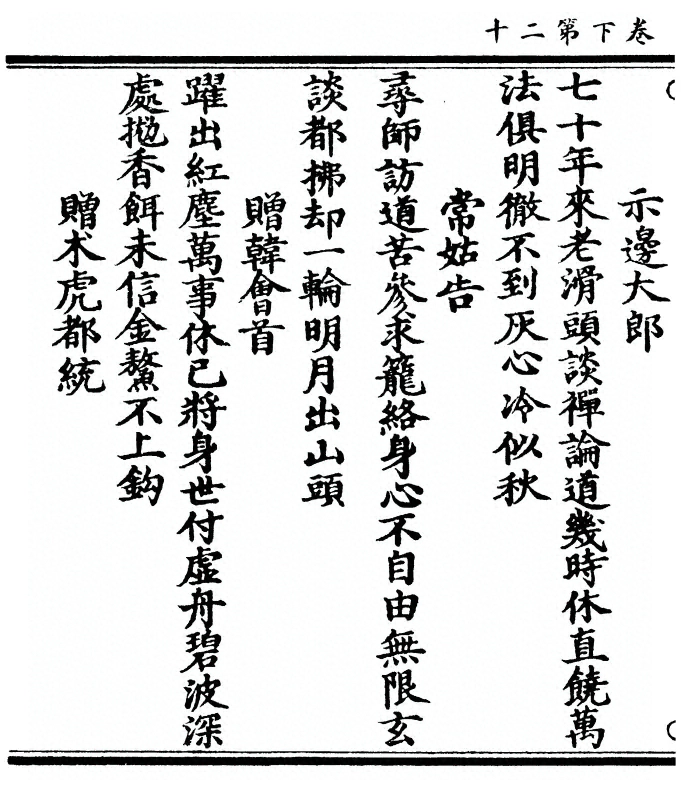 卷下第二十
示邊大郎
七十年來老滑頭談禪論道幾時休直饒萬
法俱明徹不到灰心冷似秋
常姑告
尋師訪道苦參求籠絡身心不自由無限玄
談都拂却一輪明月出山頭
贈韓會首
躍出紅塵萬事休已將身世付虛舟碧波深
處拋香餌未信金鰲不上鈎
贈术虎都統